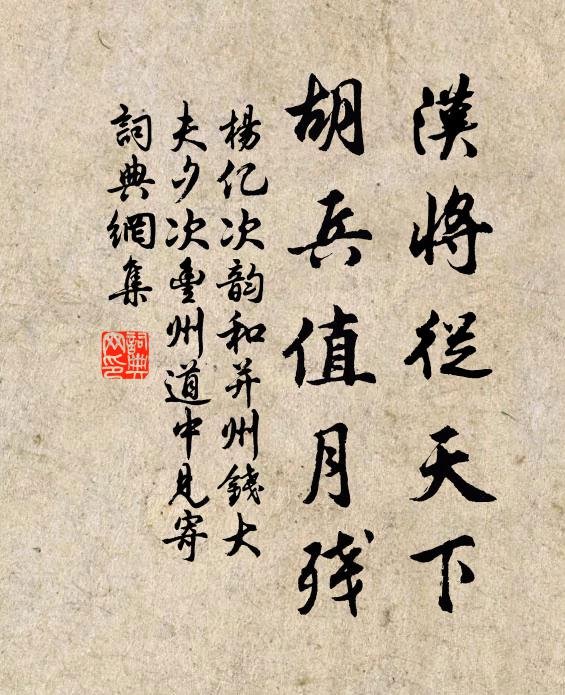 漢將從天下
胡兵值月残
楊亿次韵和并州錢大
夫夕次豊州道中見寄
詞典網集
詞典
网印